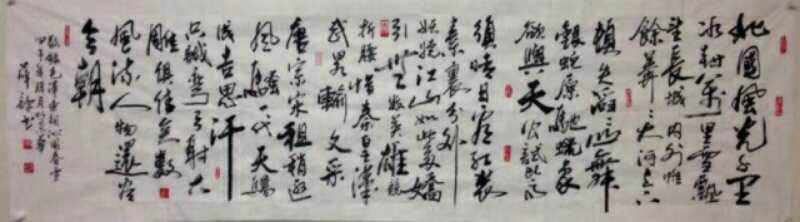 北國風光千里
冰封萬里雪飄
望長城內外惟
餘莽莽大河上下
頓失滔滔山舞
銀蛇原馳蠟象
欲與天公試比高
須晴日看紅裝
素裹分外
妖嬈江山如此多嬌
引無數英雄競
折腰惜秦皇漢
武略輸文采
唐宗宋祖稍遜
風騷一代天驕
成吉思汗
只識彎弓射大
雕俱往矣數
風流人物還看
今朝
敬錄毛澤東詞沁園春雪